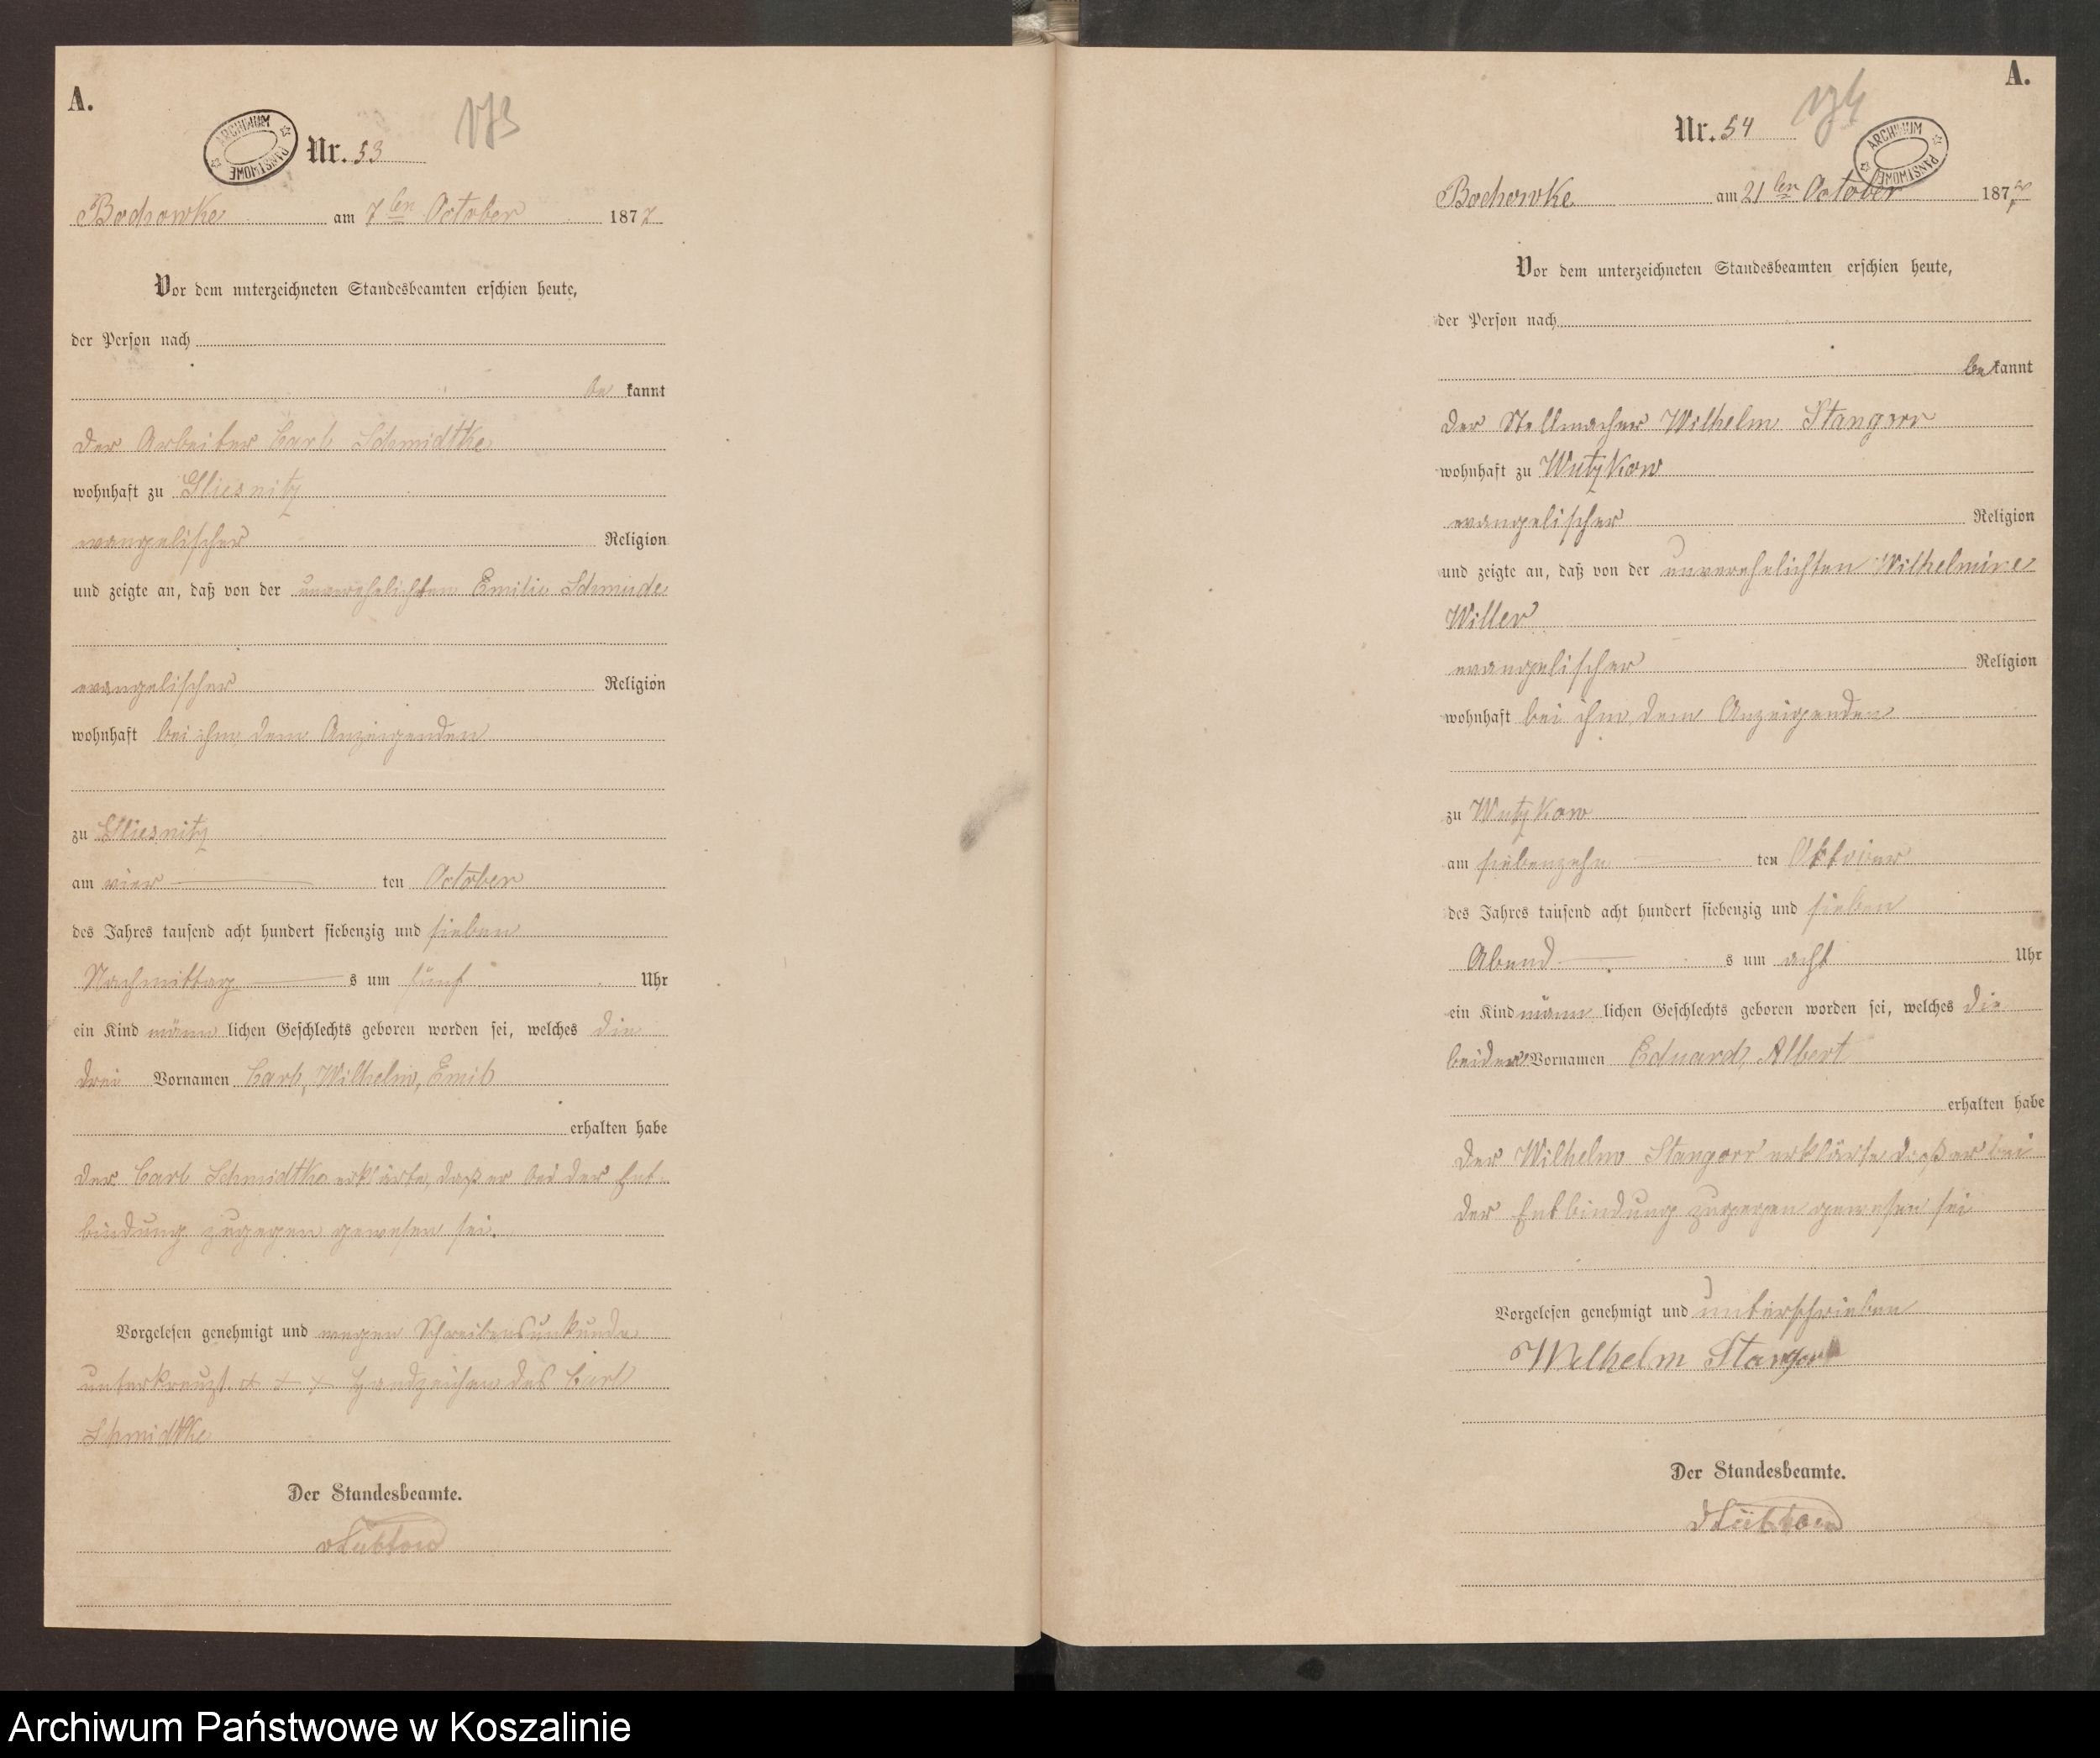 A.
ARCHIWUM PAŃSTWOWE
Nr. 53
Bochowke am 7ten October 1877
Vor dem unterzeichneten Standesbeamten erschien heute,
der Person nach
be kannt
der Arbeiter Carl Schmidtke
wohnhaft zu Gliesnitz
evangelischer Religion
und zeigte an, daß von der unverehelichten Emilie Schmude
evangelischer Religion
wohnhaft bei ihm dem Anzeigenden
zu Gliesnitz
am vier ten October
des Jahres tausend acht hundert siebenzig und sieben
Nachmittag s um fünf Uhr
ein Kind männ lichen Geschlechts geboren worden sei, welches die
drei Vornamen Carl, Wilhelm, Emil
erhalten habe
der Carl Schmidtke erklärte, daß er bei der Ent-
bindung zugegen gewesen sei.
Vorgelesen genehmigt und wegen Schreibensunkunde
unterkreuzt + + + Handzeichen des Carl
Schmidtke
Der Standesbeamte.
A.
ARCHIWUM PAŃSTWOWE
Nr. 54
Bochowke am 21ten October 1877
Vor dem unterzeichneten Standesbeamten erschien heute,
der Person nach
be kannt
der Stellmacher Wilhelm Stangorr
wohnhaft zu Wutzkow
evangelischer Religion
und zeigte an, daß von der unverehelichten Wilhelmine
Willer
evangelischer Religion
wohnhaft bei ihm dem Anzeigenden
zu Wutzkow
am siebenzehn ten Oktober
des Jahres tausend acht hundert siebenzig und sieben
Abend s um acht Uhr
ein Kind männ lichen Geschlechts geboren worden sei, welches die
beiden Vornamen Eduard, Albert
erhalten habe
Der Wilhelm Stangorr erklärte daß er bei
der Entbindung zugegen gewesen sei
Vorgelesen genehmigt und unterschrieben
Wilhelm Stangorr
Der Standesbeamte.
Archiwum Państwowe w Koszalinie